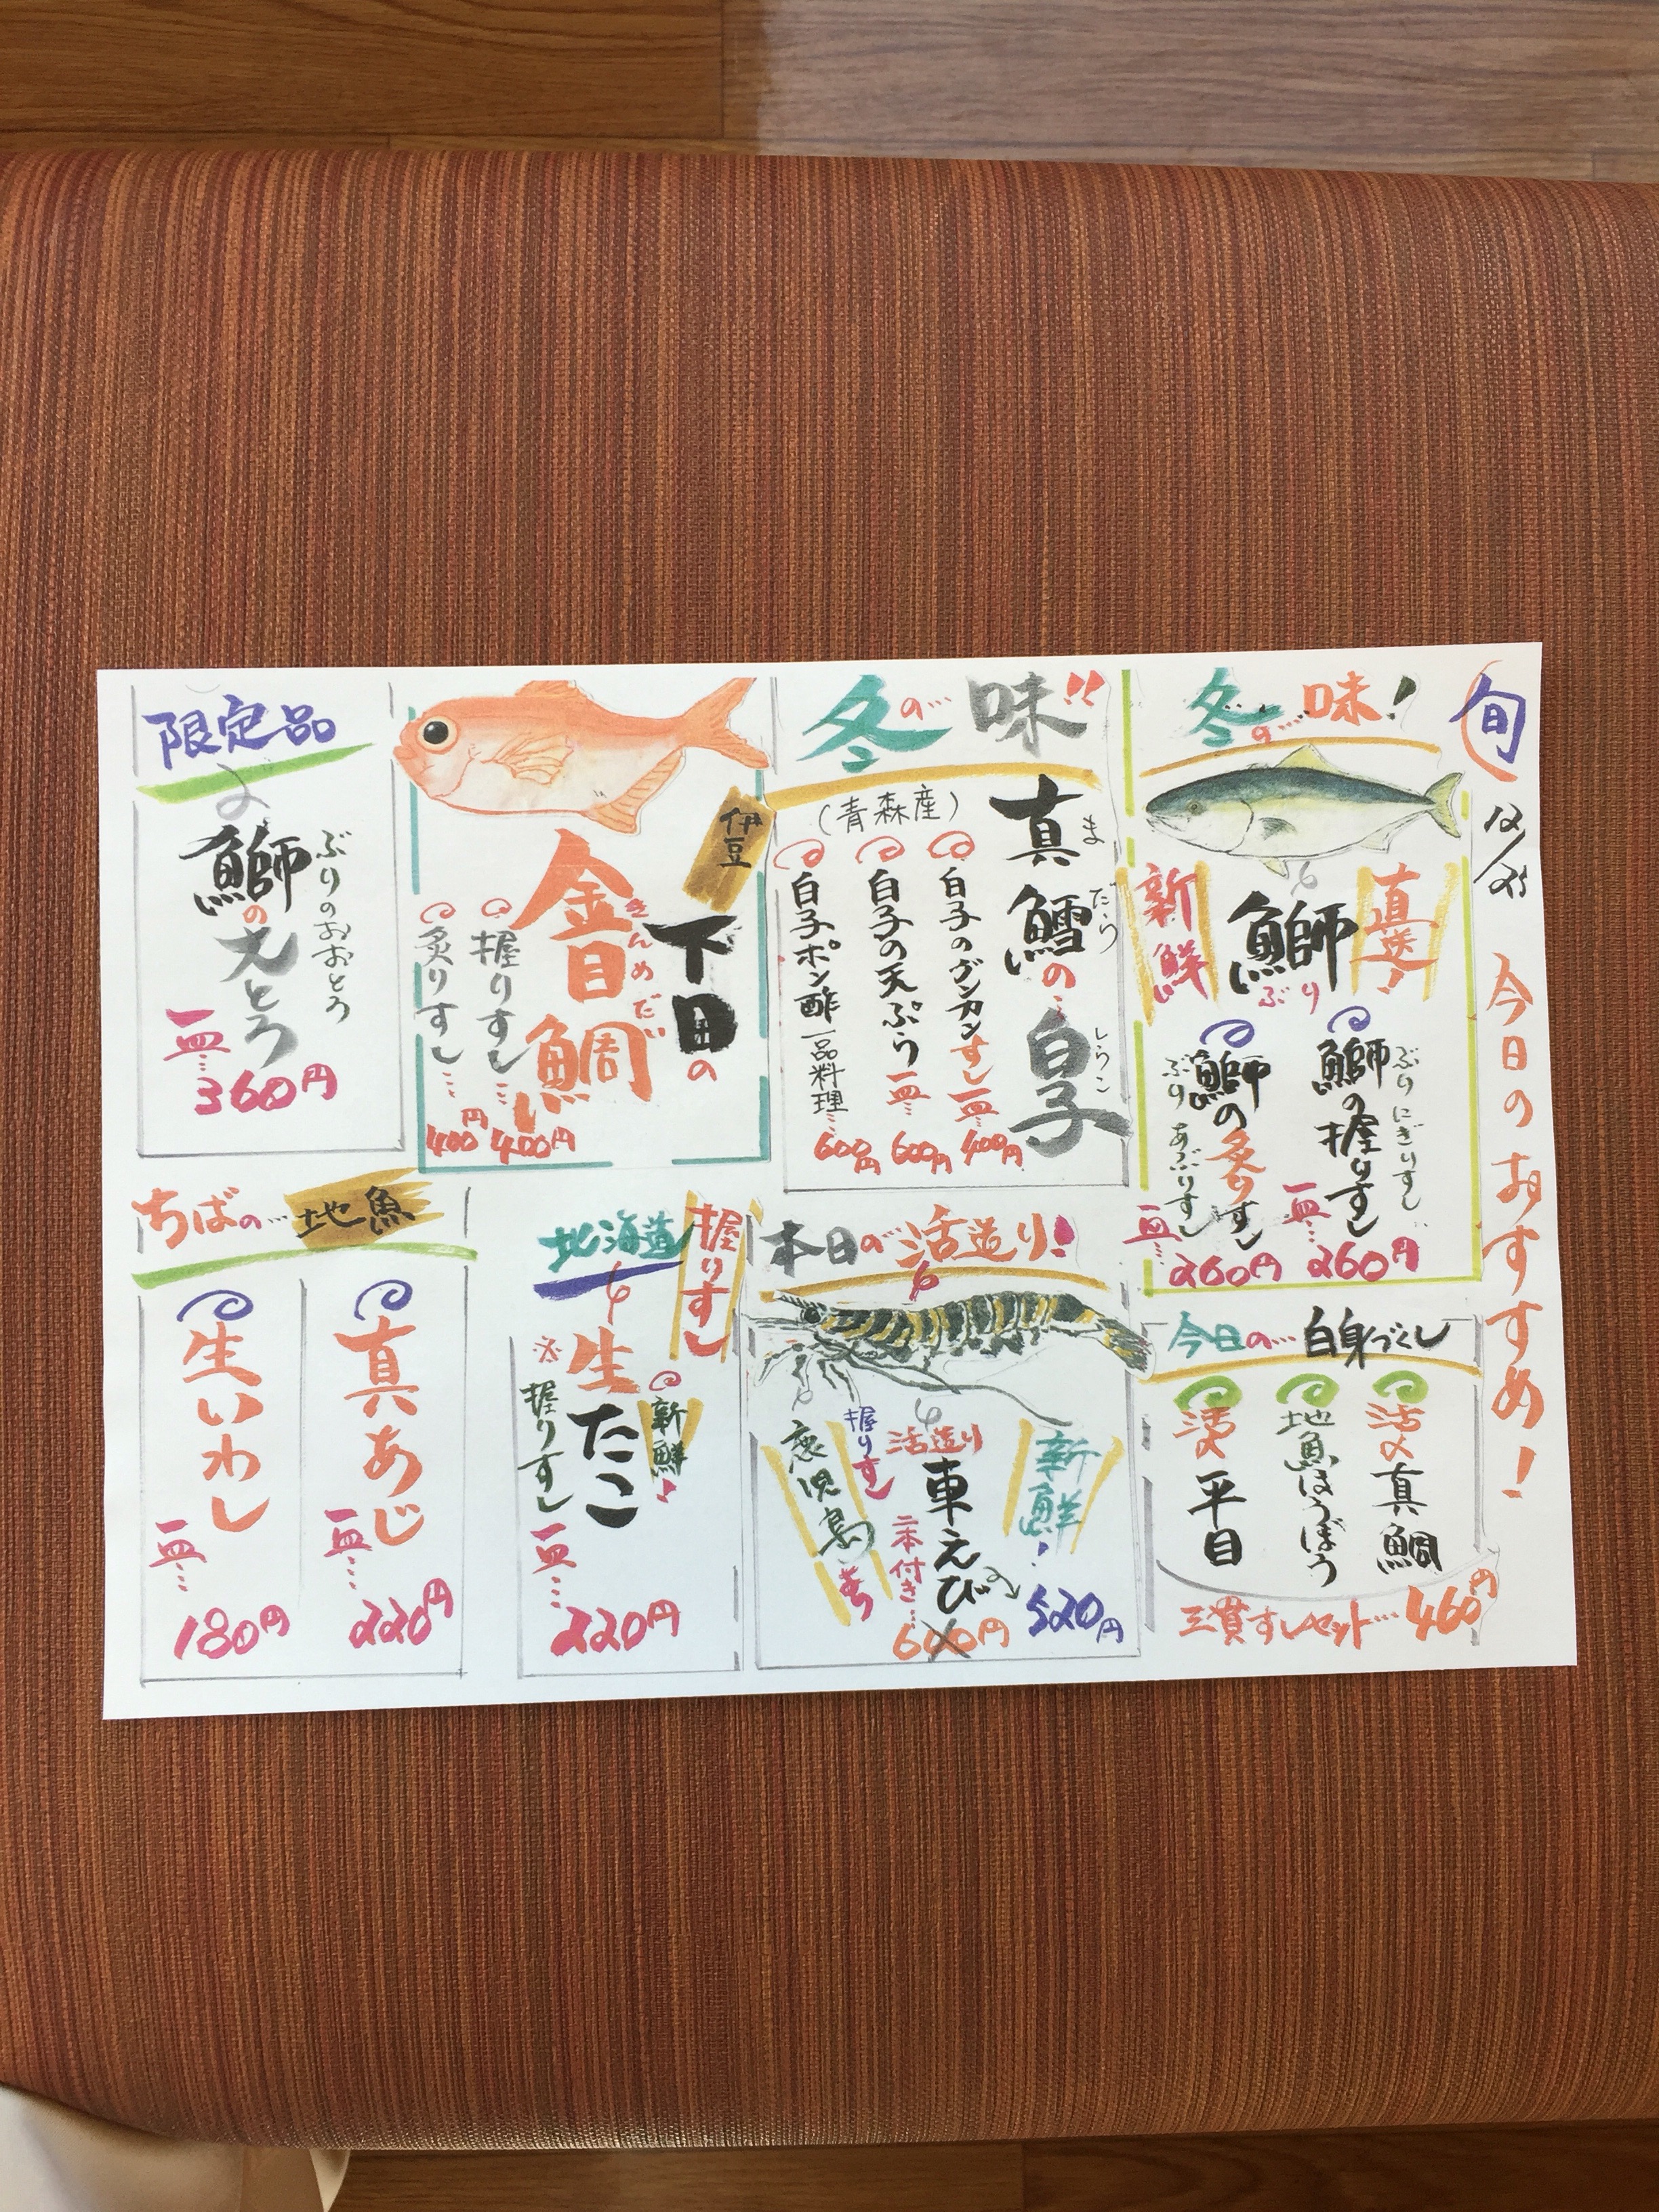 旬
12/25
今日のおすすめ!
冬の…味!
直送!
鰤
ぶり
新鮮
ぶりにぎりすし
鰤の握りすし
一皿…
260円
鰤の炙りすし
ぶりあぶりすし
一皿…
260円
冬の…味!!
真鱈の…白子
まだら
しらこ
(青森産)
白子のグンカンすし一皿…
400円
白子の天ぷら一皿…
600円
白子ポン酢一品料理…
600円
伊豆
下田の
金目鯛
きんめだい
握りすし…
400円
炙りすし…
400円
限定品
ぶりのおおとろ
鰤の大とろ
一皿…
360円
今日の…白身づくし
活〆真鯛
地魚ほうぼう
活〆平目
三貫すしセット…460円
本日の活造り!
新鮮!
520円
活造り
車えび
二本付き…
600円
握りすし
鹿児島
握りすし
北海道
新鮮!
生たこ
※握りすし
一皿…
220円
ちばの…地魚
真あじ
一皿…
220円
生いわし
一皿…
180円